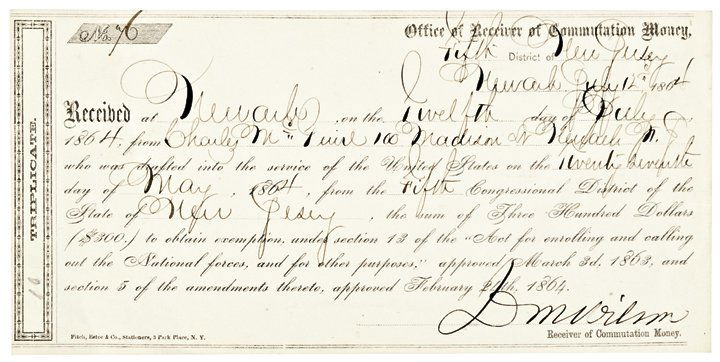 No. 76
Office of Receiver of Commutation Money,
Fifth District of New Jersey
Newark 12th 1864
Received at Newark, on the Twelfth day of July,
1864, from Charles 100 Madison St Newark N. J.
who was drafted into the service of the United States on the Twenty Seventh
day of May, 1864, from the Fifth Congressional District of the
State of New Jersey, the sum of Three Hundred Dollars
($300,) to obtain exemption, under section 13 of the "Act for enrolling and calling
out the National forces, and for other purposes," approved March 3d, 1863, and
section 5 of the amendments thereto, approved February 24th, 1864.
Wilson
Receiver of Commutation Money.
Fitch, Estee & Co., Stationers, 3 Park Place, N. Y.
TRIPLICATE.